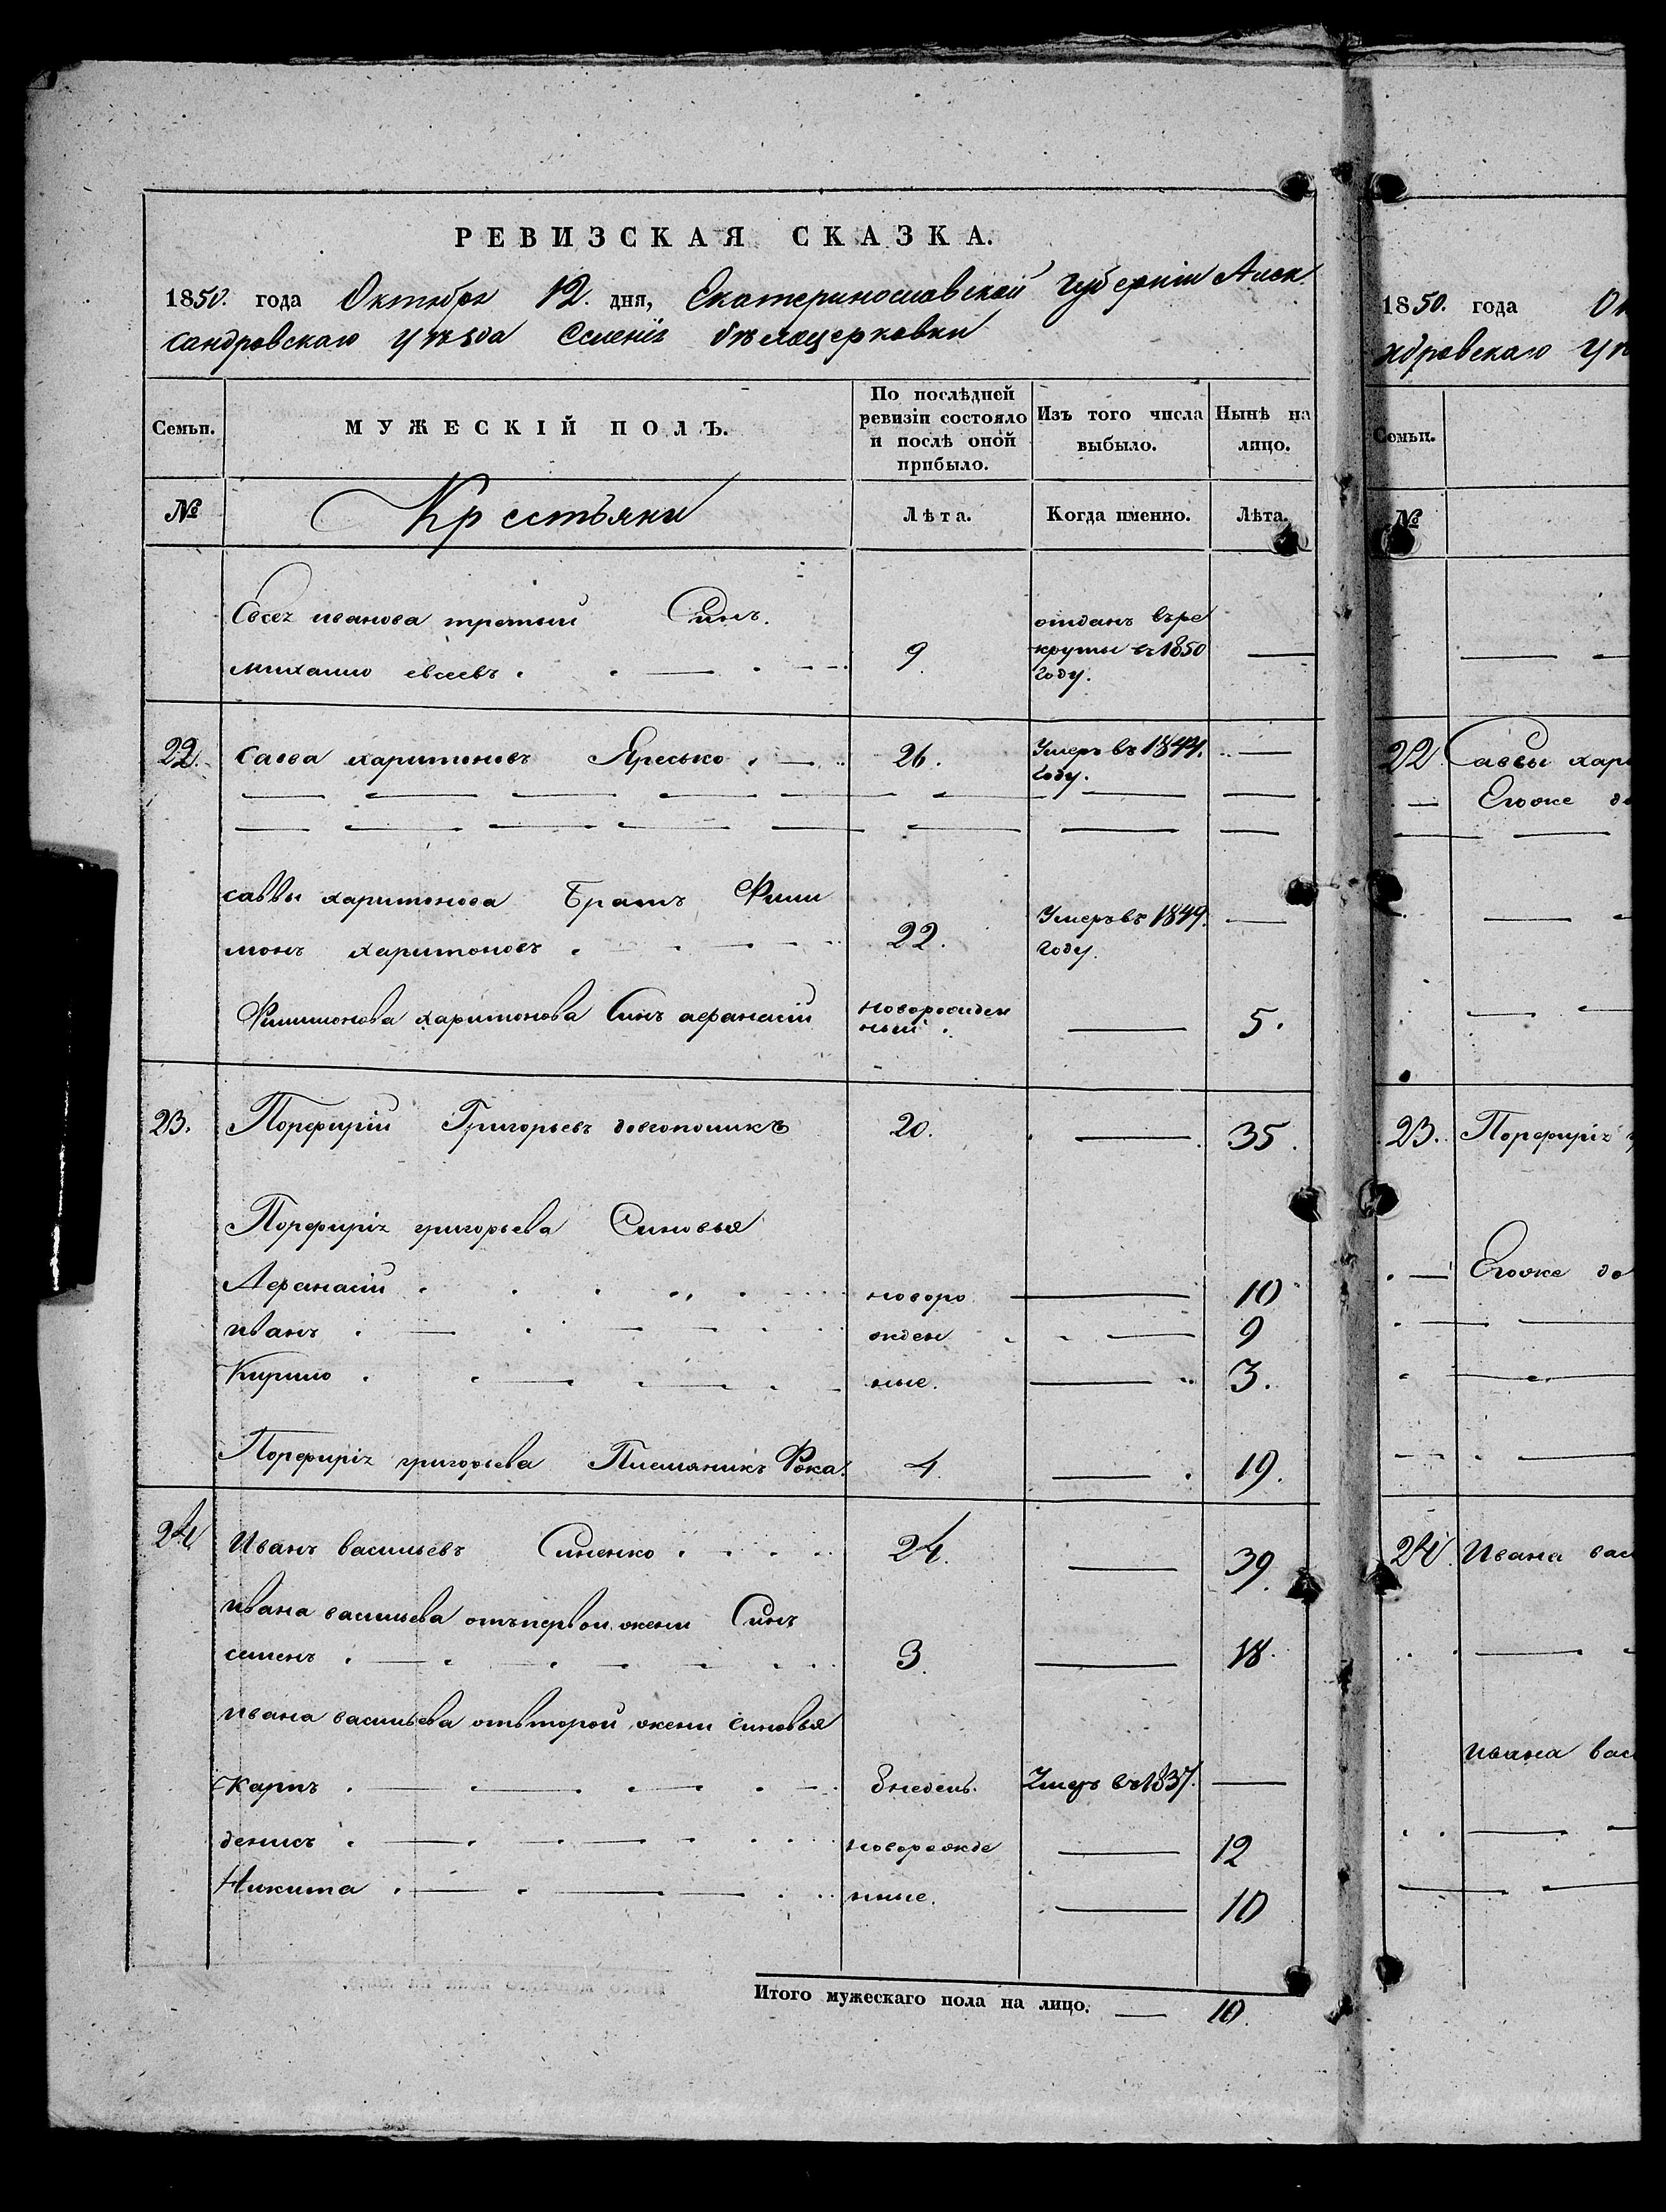 РЕВИЗСКАЯ СКАЗКА.
1850. года Октября 12. дня, Екатеринославской Губерніи Алек
сандровскаго уѣзда Селенія бѣлоцерковки
Семьи. МУЖЕСКІЙ ПОЛЪ. По послѣдней ревизіи состояло и послѣ оной прибыло. Изъ того числа выбыло. Нынѣ на лицо.
№ Крестьяне Лѣта. Когда именно. Лѣта.
Евсея иванова третий Синъ.
михаило евсеевъ 9 отданъ въре крути въ 1850 Году.
22. Савва харитоновъ Яресько 26. Умеръ въ 1844. Году.
саввы харитонова Братъ Фили
монъ харитоновъ 22. Умеръ въ 1849. Году.
Филимонова харитонова Синъ афанасій новорожден ный 5.
23. Порфирій Григорьевъ довгополикъ 20. 35.
Порфирія григорьева Синовья
Афанасій новоро 10
иванъ жден 9
Кирило ные. 3.
Порфирія григорьева Племяникъ Фока. 4 19.
24 Иванъ васильевъ Синенко 24. 39.
ивана васильева отъпервой жени Синъ
семенъ 3. 18.
ивана васильева отвторой жени синовья
карпъ 8недель. Умеръ въ1837.
денисъ новорожде 12
Никита нные. 10
Итого мужескаго пола на лицо. 10.
1850. года
№
Семьи.
22 Саввы
Егоже
23. Порфирія
Егоже
24. Ивана
ивана